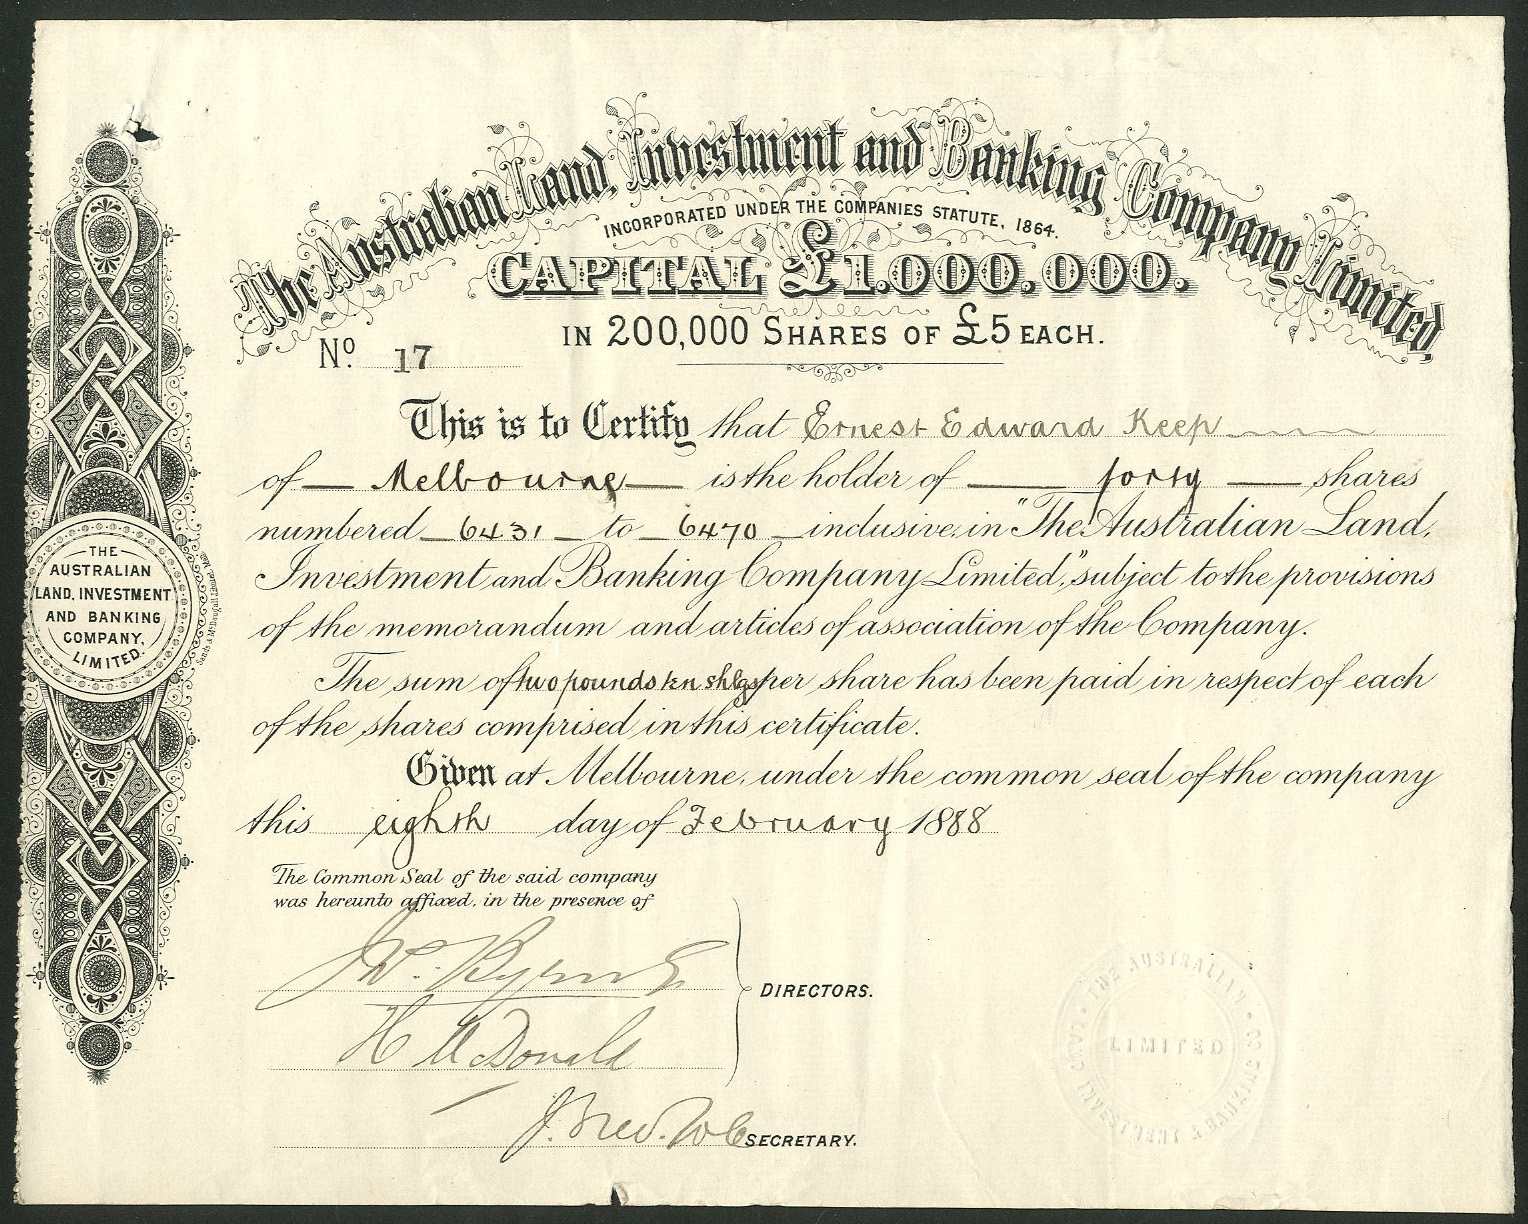 The Australian Land, Investment and Banking Company Limited.
INCORPORATED UNDER THE COMPANIES STATUTE, 1864.
CAPITAL £1.000.000.
IN 200,000 SHARES OF £5 EACH.
No. 17
This is to Certify that Ernest Edward Keep
of — Melbourne — is the holder of — forty — shares
numbered 6431 to 6470 inclusive, in "The Australian Land,
Investment and Banking Company Limited," subject to the provisions
of the memorandum and articles of association of the Company.
The sum of two pounds ten shlgs per share has been paid in respect of each
of the shares comprised in this certificate.
Given at Melbourne, under the common seal of the company
this eighth day of February 1888
The Common Seal of the said company
was hereunto affixed, in the presence of
DIRECTORS.
H McDonald
SECRETARY.
THE
AUSTRALIAN
LAND, INVESTMENT
AND BANKING
COMPANY,
LIMITED.
THE AUSTRALIAN LAND INVESTMENT & BANKING CO
LIMITED